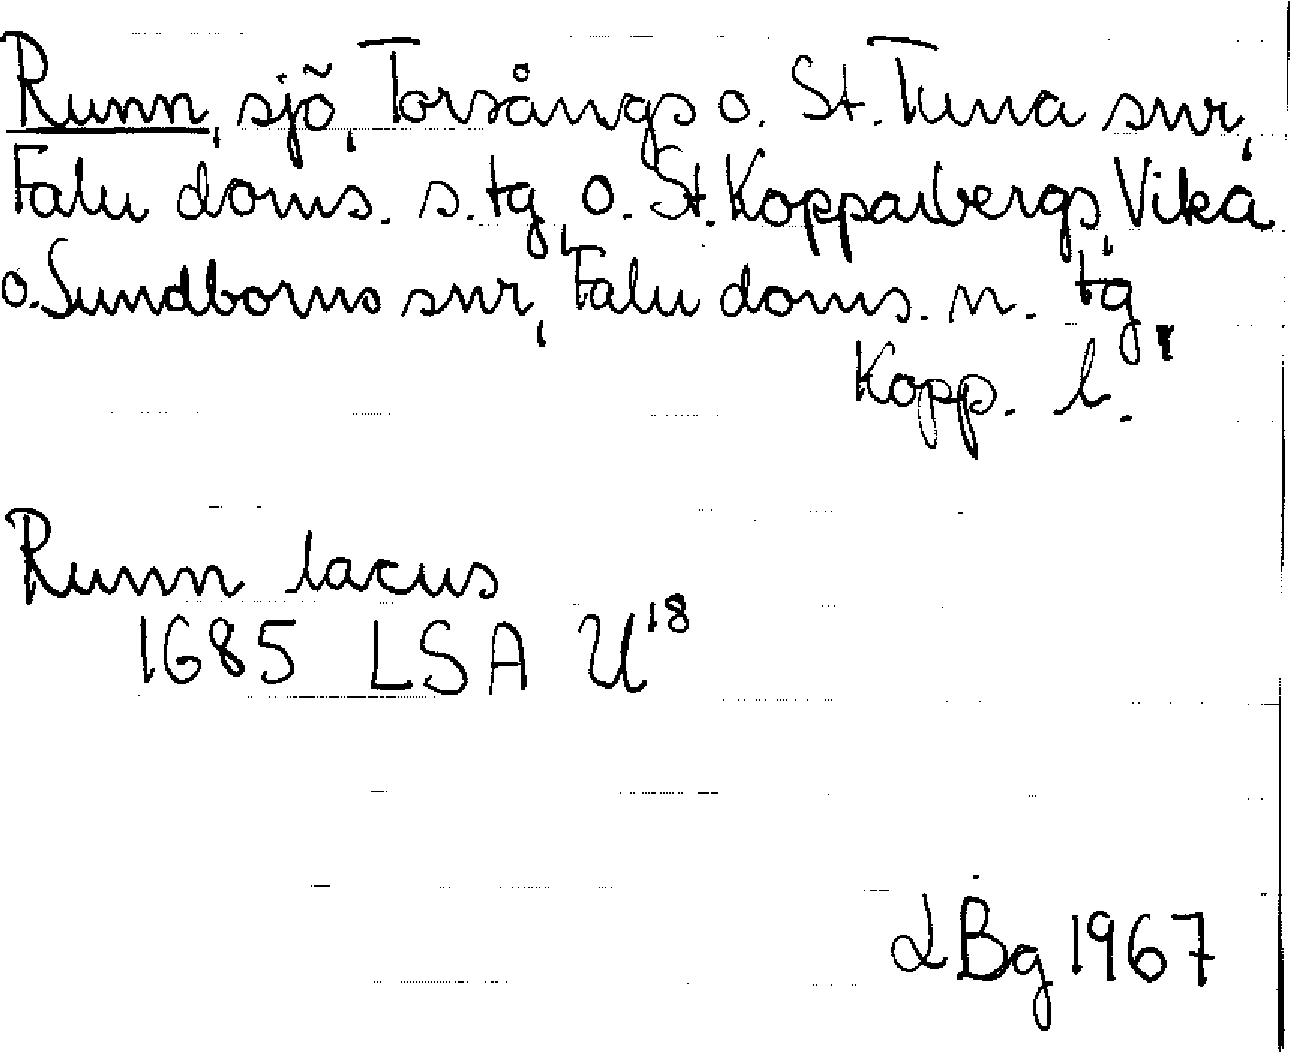 Runn, sjö, Torsångs o. St. Tuna snr,
Falu doms. s. tg, o. St. Kopparbergs, Vika
o. Sundborns snr, Falu doms. n. tg,
Kopp. l.
Runn lacus
1685 LSA U¹⁸
LBg 1967